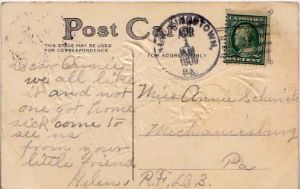 Post Card
THIS SPACE MAY BE USED FOR
CORRESPONDENCE
FOR ADDRESS ONLY
KINGSTOWN,
PA.
Dear Annie
we all like
it and not
one got home
sick come to
see us
from your
little friend
Helen
Miss Annie
Mechanicsburg
Pa
R.F.D. 3.